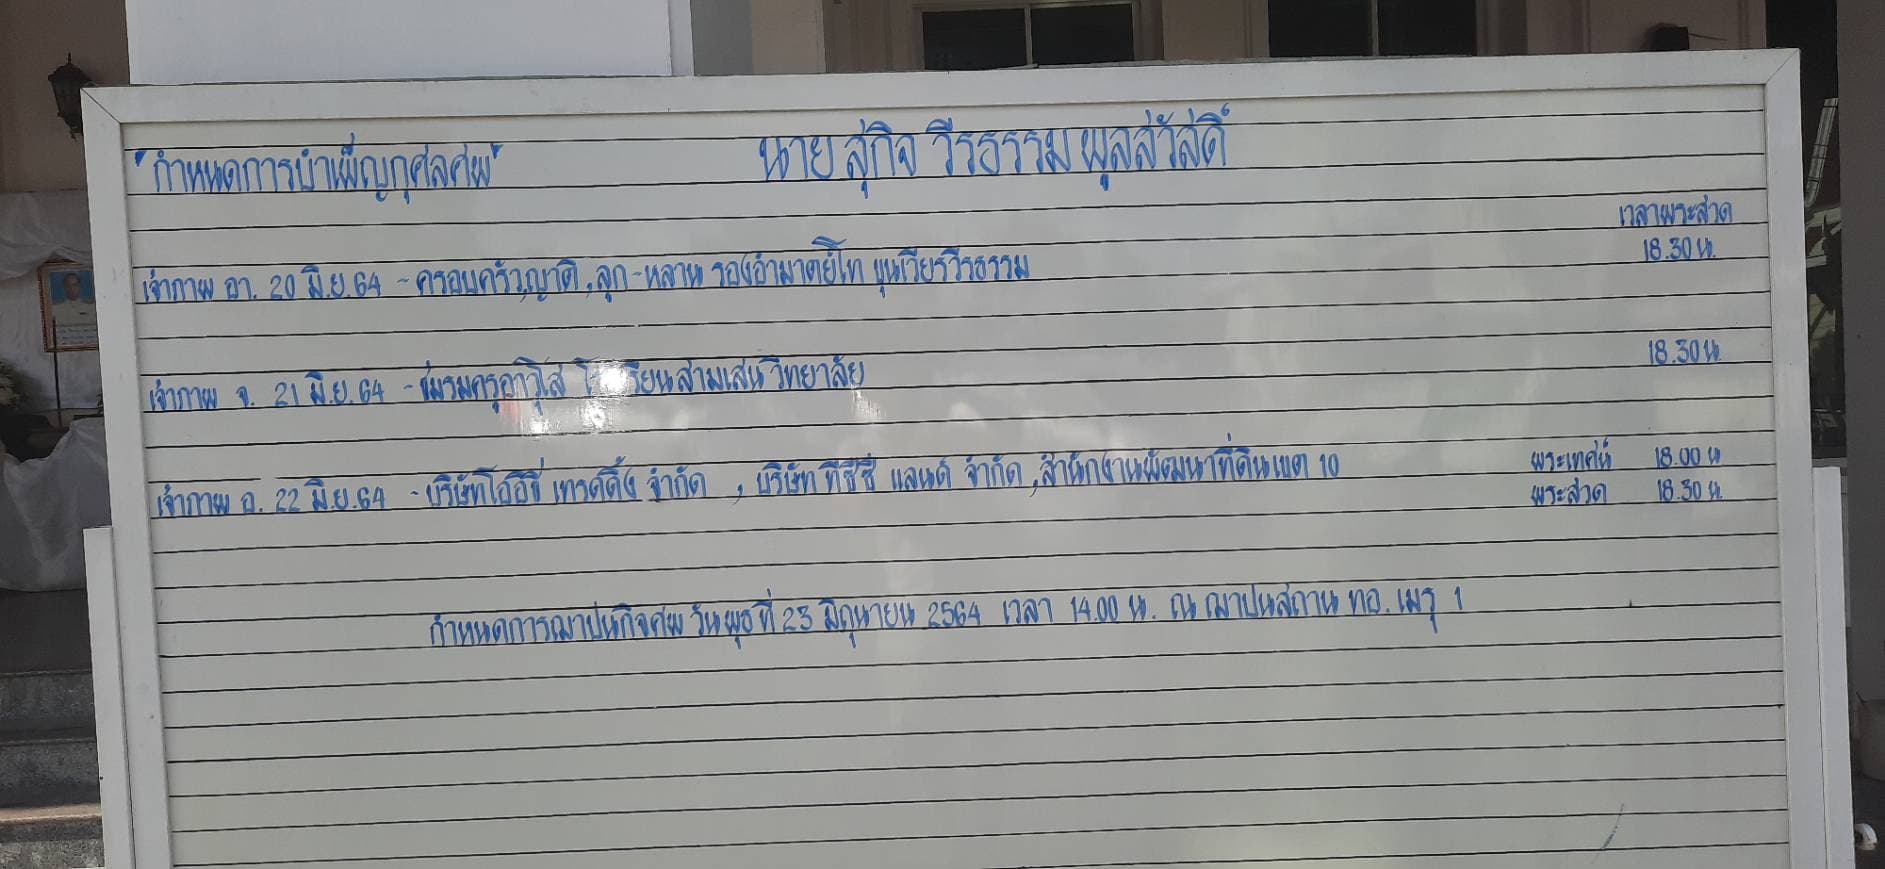 "กำหนดการบำเพ็ญกุศลศพ" นายสุกิจ วีรธรรมพูลสวัสดิ์
เวลาพระสวด
เจ้าภาพ อา. 20 มิ.ย. 64 - ครอบครัว,ญาติ,ลูก-หลาน รองอำมาตย์โท ขุนเวียรวีรธรรม 18.30 น.
เจ้าภาพ จ. 21 มิ.ย. 64 - ชมรมครูอาวุโส โรงเรียนสามเสนวิทยาลัย 18.30 น.
เจ้าภาพ อ. 22 มิ.ย. 64 - บริษัทโออีซี่ เทรดดิ้ง จำกัด , บริษัท ทีซีซี แลนด์ จำกัด , สำนักงานพัฒนาที่ดินเขต 10 พระเทศน์ 18.00 น
พระสวด 18.30 น.
กำหนดการฌาปนกิจศพ วันพุธที่ 23 มิถุนายน 2564 เวลา 14.00 น. ณ ฌาปนสถาน ทอ. เมรุ 1